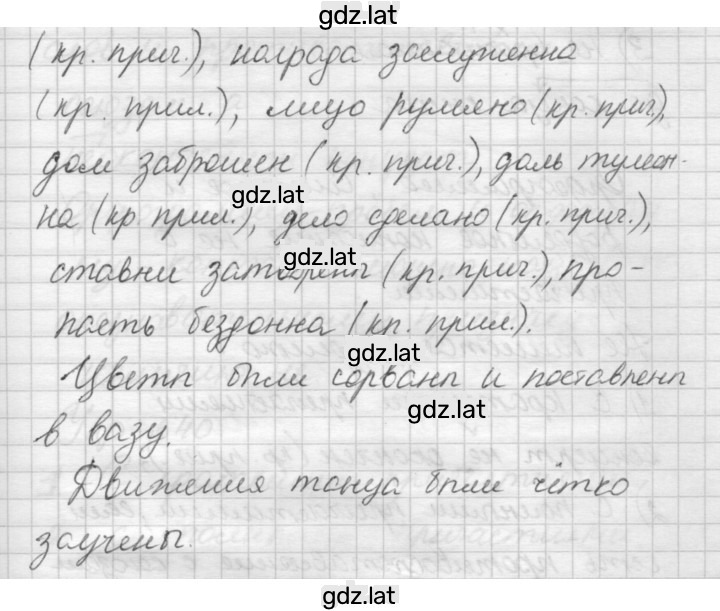 gdz.lat
(кр. прич.), награда заслуженна
(кр. прил.), лицо румяно (кр. прич),
дом заброшен (кр. прич.), даль туман-
gdz.lat
на (кр прил.), дело сделано (кр. прич.),
gdz.lat
ставни затворены (кр. прич.), про-
пасть бездонна (кп. прил.).
gdz.lat
Цветы были сорваны и поставлены
gdz.lat
в вазу.
Движения танца были чётко
заучены.
gdz.lat